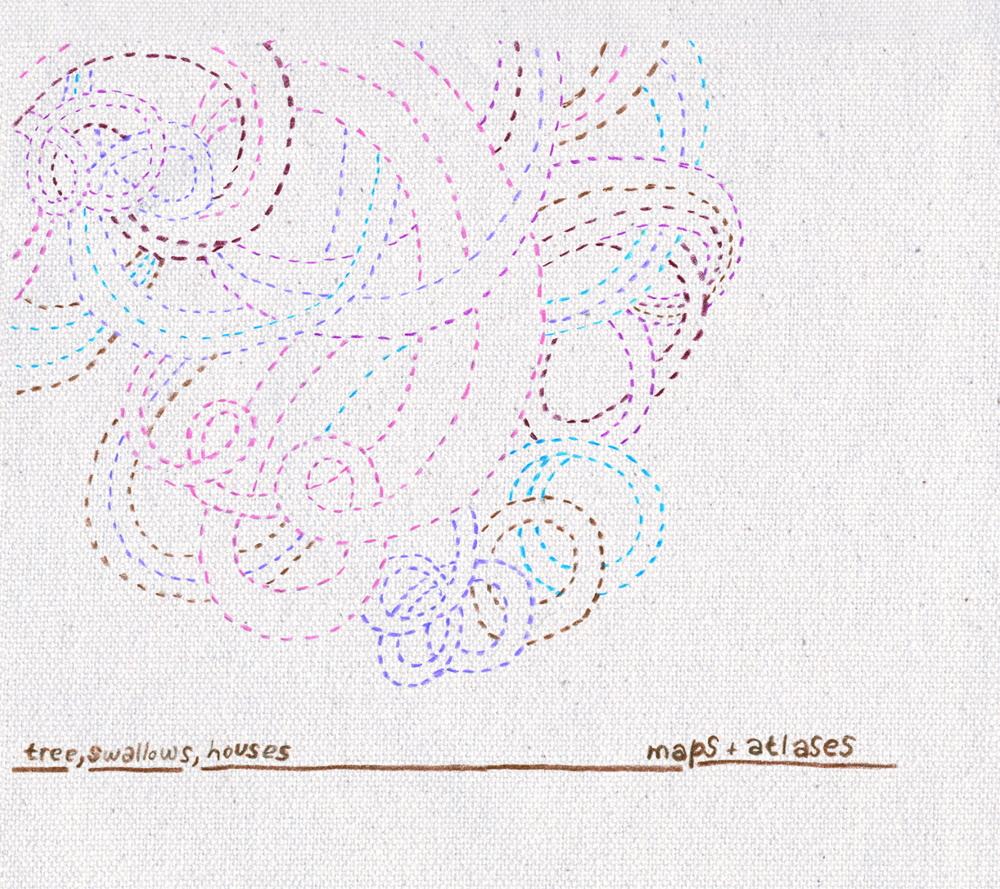 tree, swallows, houses maps + atlases